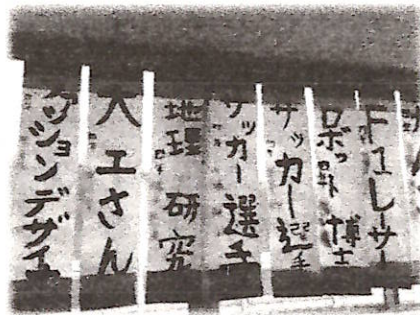 F1レーサー
ロボット博士
サッカー選手
サッカー選手
地理研究
大工さん
ッションデザイ